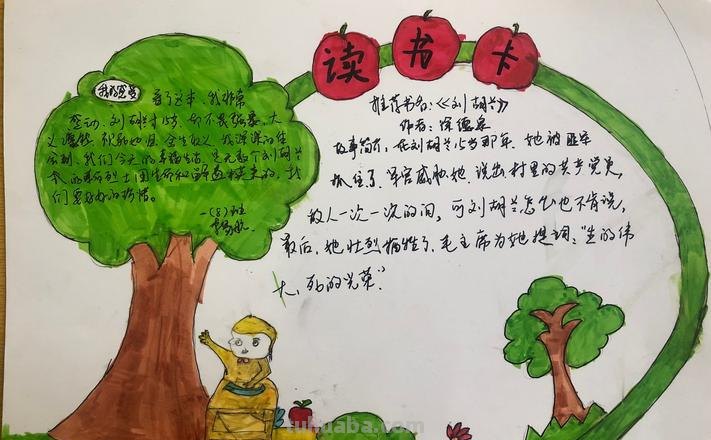 读书卡
我的感受
看了这本,我非常
感动,刘胡兰才15岁,却不畏强暴,大
义凛然,
我深深的体
会到,我们今天的幸福生活,是无数个刘胡兰
的革命烈士用生命和
换来的,我
们要好好的珍惜。
一(8)班
推荐书名:《刘胡兰》
作者:徐德泉
故事简介:在刘胡兰15岁那年,她被匪军
抓住了,军官威胁她,说出村里的共产党员,
敌人一次一次的问,可刘胡兰怎么也不肯说,
最后,她壮烈牺牲了,毛主席为她提词:“生的伟
大,死的光荣”
tuhuaba.com